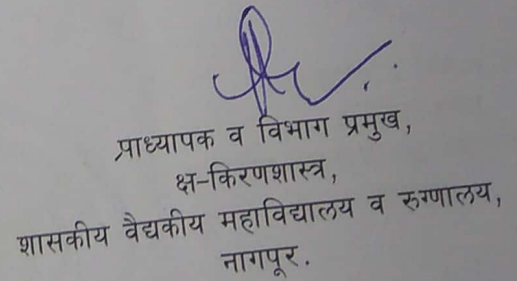 प्राध्यापक व विभाग प्रमुख,
क्ष-किरणशास्त्र,
शासकीय वैद्यकीय महाविद्यालय व रुग्णालय,
नागपूर.